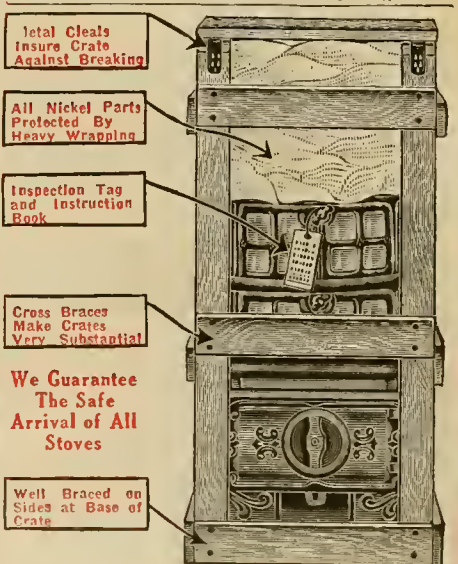 Metal Cleats
Insure Crate
Against Breaking
All Nickel Parts
Protected By
Heavy Wrapping
Inspection Tag
and Instruction
Book
Cross Braces
Make Crates
Very Substantial
We Guarantee
The Safe
Arrival of All
Stoves
Well Braced on
Sides at Base of
Crate